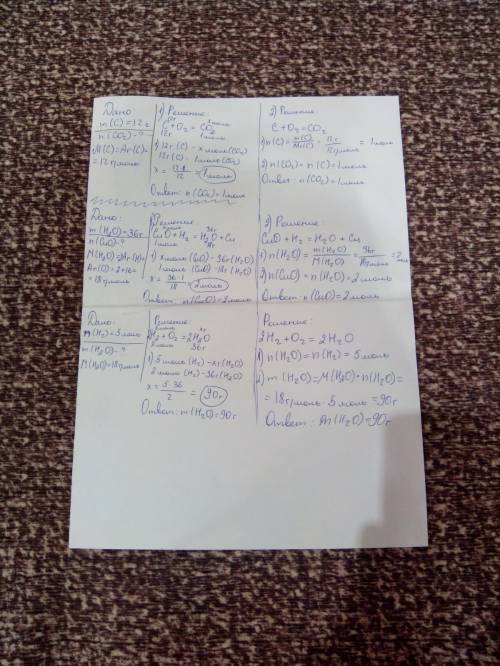 Дано
m(C)=12г
n(CO₂)-?
M(C)=Ar(C)=
=12г/моль
1) Решение
12г
x моль
C+O₂=CO₂
12г
1 моль
1) 12г(C) - x моль(CO₂)
12г(C) - 1 моль(CO₂)
x = 12·1/12 = 1 моль
Ответ: n(CO₂)=1 моль
2) Решение
C+O₂=CO₂
1) n(C)= m(C)/M(C) = 12г/12г/моль = 1 моль
2) n(CO₂)=n(C)=1 моль
Ответ: n(CO₂)=1 моль
Дано:
m(H₂O)=36г
n(CuO)-?
=18г/моль
Решение:
x моль
36г
CuO+H₂=H₂O+Cu
1 моль
18г
1) x моль(CuO)-36г(H₂O)
1 моль(CuO)-18г(H₂O)
x = 36·1/18 = 2 моль
Ответ: n(CuO)=2 моль
2) Решение:
CuO+H₂=H₂O+Cu
1) n(H₂O)= m(H₂O)/M(H₂O) =
2) n(CuO)=n(H₂O)=2 моль
Ответ: n(CuO)=2 моль
Дано:
n(H₂)=5 моль
m(H₂O)-?
M(H₂O)=18г/моль
Решение:
5 моль
xг
2H₂+O₂=2H₂O
2 моль
36г
1) 5 моль(H₂)-xг(H₂O)
2 моль(H₂)-36г(H₂O)
x = 5·36/2 = 90г
Ответ: m(H₂O)=90г
Решение:
2H₂+O₂=2H₂O
1) n(H₂O)=n(H₂)=5 моль
2) m(H₂O)=M(H₂O)·n(H₂O)=
=18г/моль·5 моль=90г
Ответ: m(H₂O)=90г